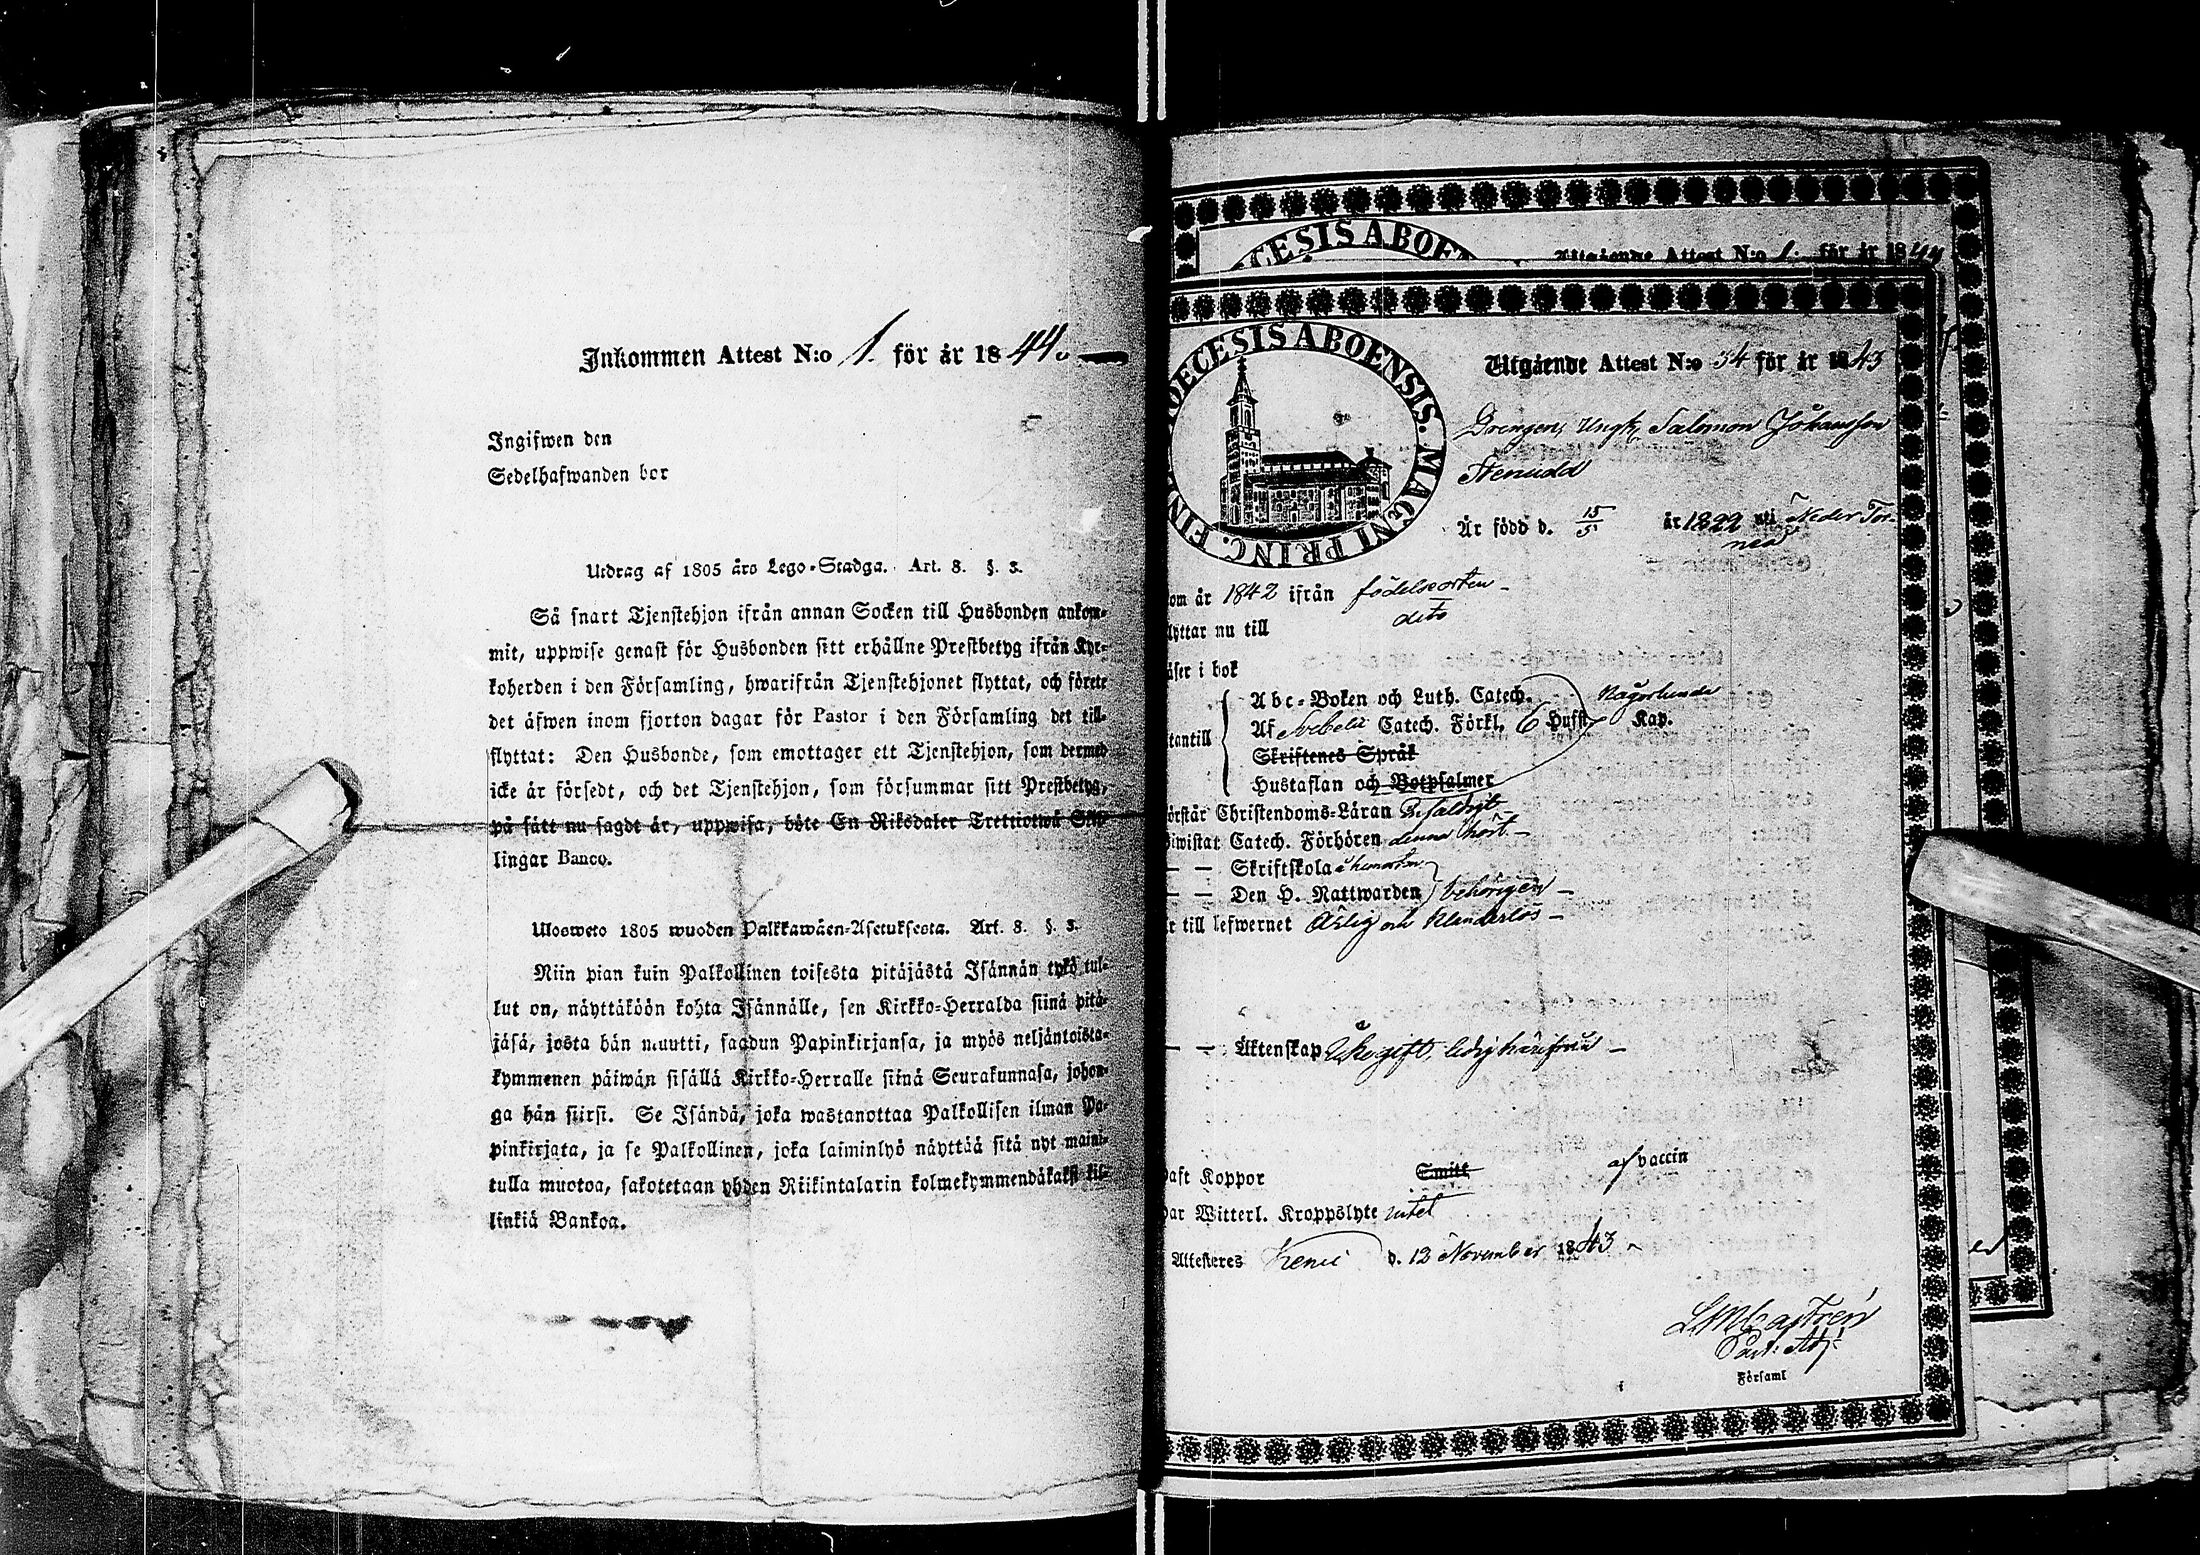 Inkommen Attest N:o 1. för år 1844.
Ingifwen den
Sedelhafwanden bor
Utdrag af 1805 års Lego-Stadga. Art. 8. §. 3.
Så snart Tjenstehjon ifrån annan Socken till Husbonden ankom-
mit, uppwise genast för Husbonden sitt erhållne Prestbetyg ifrån Kyr-
koherden i den Församling, hwarifrån Tjenstehjonet flyttat, och förete
det äfwen inom fjorton dagar för Pastor i den Församling det till-
flyttat: Den Husbonde, som emottager ett Tjenstehjon, som dermed
icke är försedt, och det Tjenstehjon, som försummar sitt Prestbetyg,
på sätt nu sagdt är, uppwisa, böte En Riksdaler Trettiotwå Skil-
lingar Banco.
Ulosweto 1805 wuoden Palkkawäen-Asetuksesta. Art. 8. §. 3.
Niin pian kuin Palkollinen toisesta pitäjästä Isännän tykö tul-
lut on, näyttäköön kohta Isännälle, sen Kirkko-Herralda siinä pitä-
jäsä, josta hän muutti, saadun Papinkirjansa, ja myös neljäntoista-
kymmenen päiwän sisällä Kirkko-Herralle siinä Seurakunnasa, johon-
ga hän siirsi. Se Isändä, joka wastanottaa Palkollisen ilman Pa-
pinkirjata, ja se Palkollinen, joka laiminlyö näyttää sitä nyt maini-
tulla muotoa, sakotetaan yhden Riikintalarin kolmekymmendäkaksi kil-
linkiä Bankoa.
CESIS ABOE
Utgående Attest N:o 1. för år 1844
OECESIS ABOENSIS. MAGNI PRINC. FIN
Utgående Attest N:o 34 för år 1843
Drengen, Ungk. Salomon Johansson
Stenudd
Är född d. 15/5 år 1822 uti Neder Tor-
neå
om år 1842 ifrån födelseorten -
lyttar nu till dito
äser i bok
Abc-Boken och Luth. Catech. någorlunda
Af Svebelii Catech. Förkl. 6 Hufst. Kap.
tantill
Skriftenes Språk
Hustaflan och Botpsalmer
örstår Christendoms-Läran
iwistat Catech. Förhören denna höst. -
— — Skriftskola
— — Den H. Nattwarden behörigen -
r till lefwernet Ärlig och klanderlös -
— — Äktenskap Oäkegift, ledig härifrån -
haft Koppor Smitt af vaccin
har Witterl. Kroppslyte intet
Attesteres Kemi d. 12 November 1843 -
L M Castrén
Past: Adj:
Församl